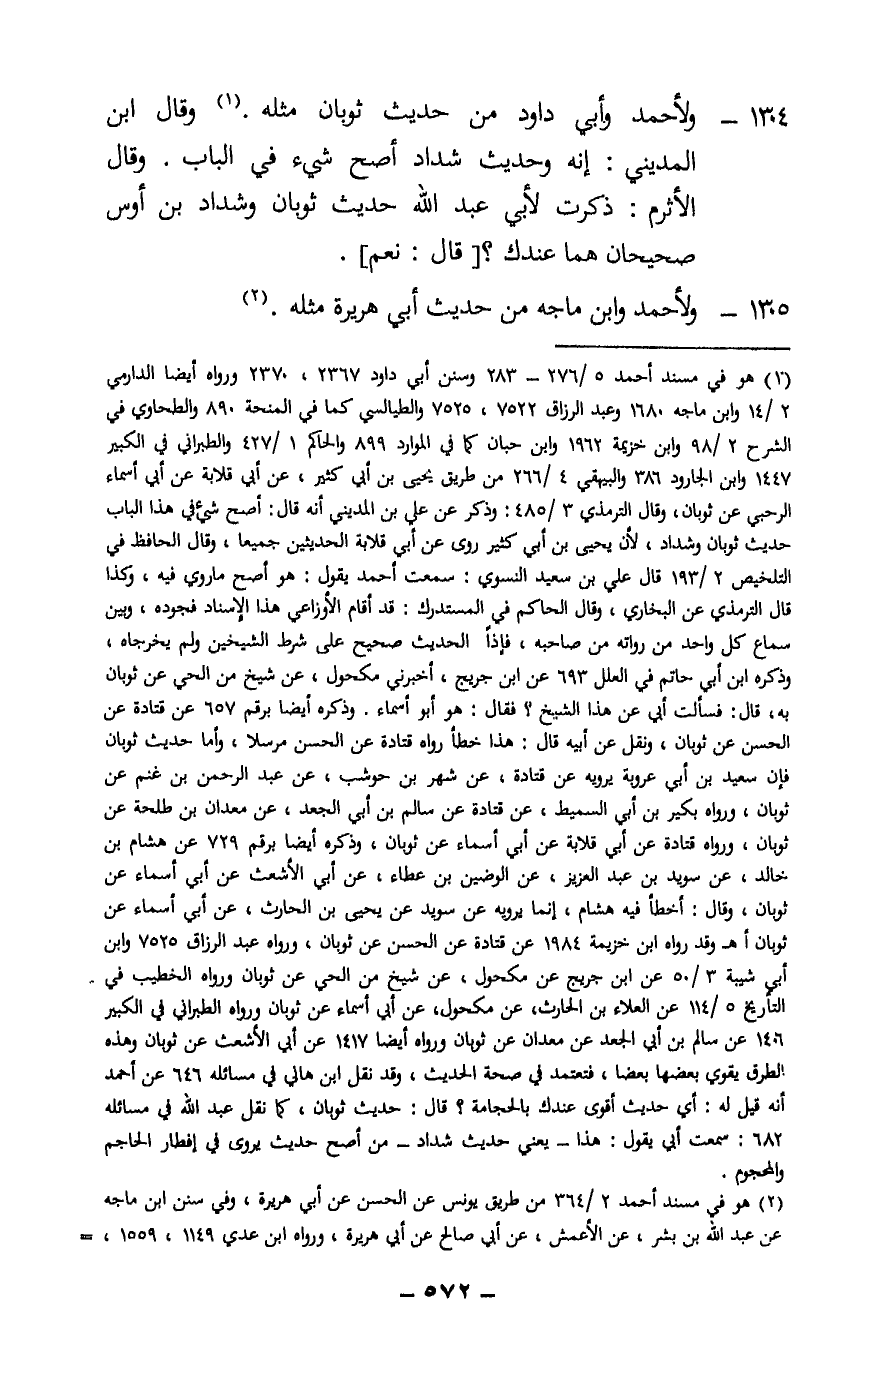 ١٣٠٤ – ولأحمد وأبي داود من حديث ثوبان مثله .(١) وقال ابن
المديني : إنه وحديث شداد أصح شيء في الباب . وقال
الأثرم : ذكرت لأبي عبد الله حديث ثوبان وشداد بن أوس
صحيحان هما عندك ؟[ قال : نعم] .
١٣٠٥ – ولأحمد وابن ماجه من حديث أبي هريرة مثله .(٢)
(١) هو في مسند أحمد ٥ /٢٧٦ – ٢٨٣ وسنن أبي داود ٢٣٦٧ ، ٢٣٧٠ ورواه أيضا الدارمي
٢ /١٤ وابن ماجه ١٦٨٠ وعبد الرزاق ٧٥٢٢ ، ٧٥٢٥ والطيالسي كما في المنحة ٨٩٠ والطحاوي في
الشرح ٢ /٩٨ وابن خزيمة ١٩٦٢ وابن حبان كما في الموارد ٨٩٩ والحاكم ١ /٤٢٧ والطبراني في الكبير
١٤٤٧ وابن الجارود ٣٨٦ والبيهقي ٤ /٢٦٦ من طريق يحيى بن أبي كثير ، عن أبي قلابة عن أبي أسماء
الرحبي عن ثوبان، وقال الترمذي ٣ /٤٨٥ : وذكر عن علي بن المديني أنه قال: أصح شيء في هذا الباب
حديث ثوبان وشداد ، لأن يحيى بن أبي كثير روى عن أبي قلابة الحديثين جميعا ، وقال الحافظ في
التلخيص ٢ /١٩٣ قال علي بن سعيد النسوي : سمعت أحمد يقول : هو أصح ماروي فيه ، وكذا
قال الترمذي عن البخاري ، وقال الحاكم في المستدرك : قد أقام الأوزاعي هذا الإسناد فجوده ، وبين
سماع كل واحد من رواته من صاحبه ، فإذاً الحديث صحيح على شرط الشيخين ولم يخرجاه ،
وذكره ابن أبي حاتم في العلل ٦٩٣ عن ابن جريج ، أخبرني مكحول ، عن شيخ من الحي عن ثوبان
به، قال: فسألت أبي عن هذا الشيخ ؟ فقال : هو أبو أسماء . وذكره أيضا برقم ٦٥٧ عن قتادة عن
الحسن عن ثوبان ، ونقل عن أبيه قال : هذا خطأ رواه قتادة عن الحسن مرسلا ، وأما حديث ثوبان
فإن سعيد بن أبي عروبة يرويه عن قتادة ، عن شهر بن حوشب ، عن عبد الرحمن بن غنم عن
ثوبان ، ورواه بكير بن أبي السميط ، عن قتادة عن سالم بن أبي الجعد ، عن معدان بن طلحة عن
ثوبان ، ورواه قتادة عن أبي قلابة عن أبي أسماء عن ثوبان ، وذكره أيضا برقم ٧٢٩ عن هشام بن
خالد ، عن سويد بن عبد العزيز ، عن الوضين بن عطاء ، عن أبي الأشعث عن أبي أسماء عن
ثوبان ، وقال : أخطأ فيه هشام ، إنما يرويه عن سويد عن يحيى بن الحارث ، عن أبي أسماء عن
ثوبان أ هـ وقد رواه ابن خزيمة ١٩٨٤ عن قتادة عن الحسن عن ثوبان ، ورواه عبد الرزاق ٧٥٢٥ وابن
أبي شيبة ٣ /٥٠ عن ابن جريج عن مكحول ، عن شيخ من الحي عن ثوبان ورواه الخطيب في
التأريخ ٥ /١١٤ عن العلاء بن الحارث، عن مكحول، عن أبي أسماء عن ثوبان ورواه الطبراني في الكبير
١٤٠٦ عن سالم بن أبي الجعد عن معدان عن ثوبان ورواه أيضا ١٤١٧ عن أبي الأشعث عن ثوبان وهذه
الطرق يقوي بعضها بعضا ، فتعتمد في صحة الحديث ، وقد نقل ابن هاني في مسائله ٦٤٦ عن أحمد
أنه قيل له : أي حديث أقوى عندك بالحجامة ؟ قال : حديث ثوبان ، كما نقل عبد الله في مسائله
٦٨٢ : سمعت أبي يقول : هذا – يعني حديث شداد – من أصح حديث يروى في إفطار الحاجم
والمحجوم .
(٢) هو في مسند أحمد ٢ /٣٦٤ من طريق يونس عن الحسن عن أبي هريرة ، وفي سنن ابن ماجه
عن عبد الله بن بشر ، عن الأعمش ، عن أبي صالح عن أبي هريرة ، ورواه ابن عدي ١١٤٩ ، ١٥٥٩ ، =
– ٥٧٢ –